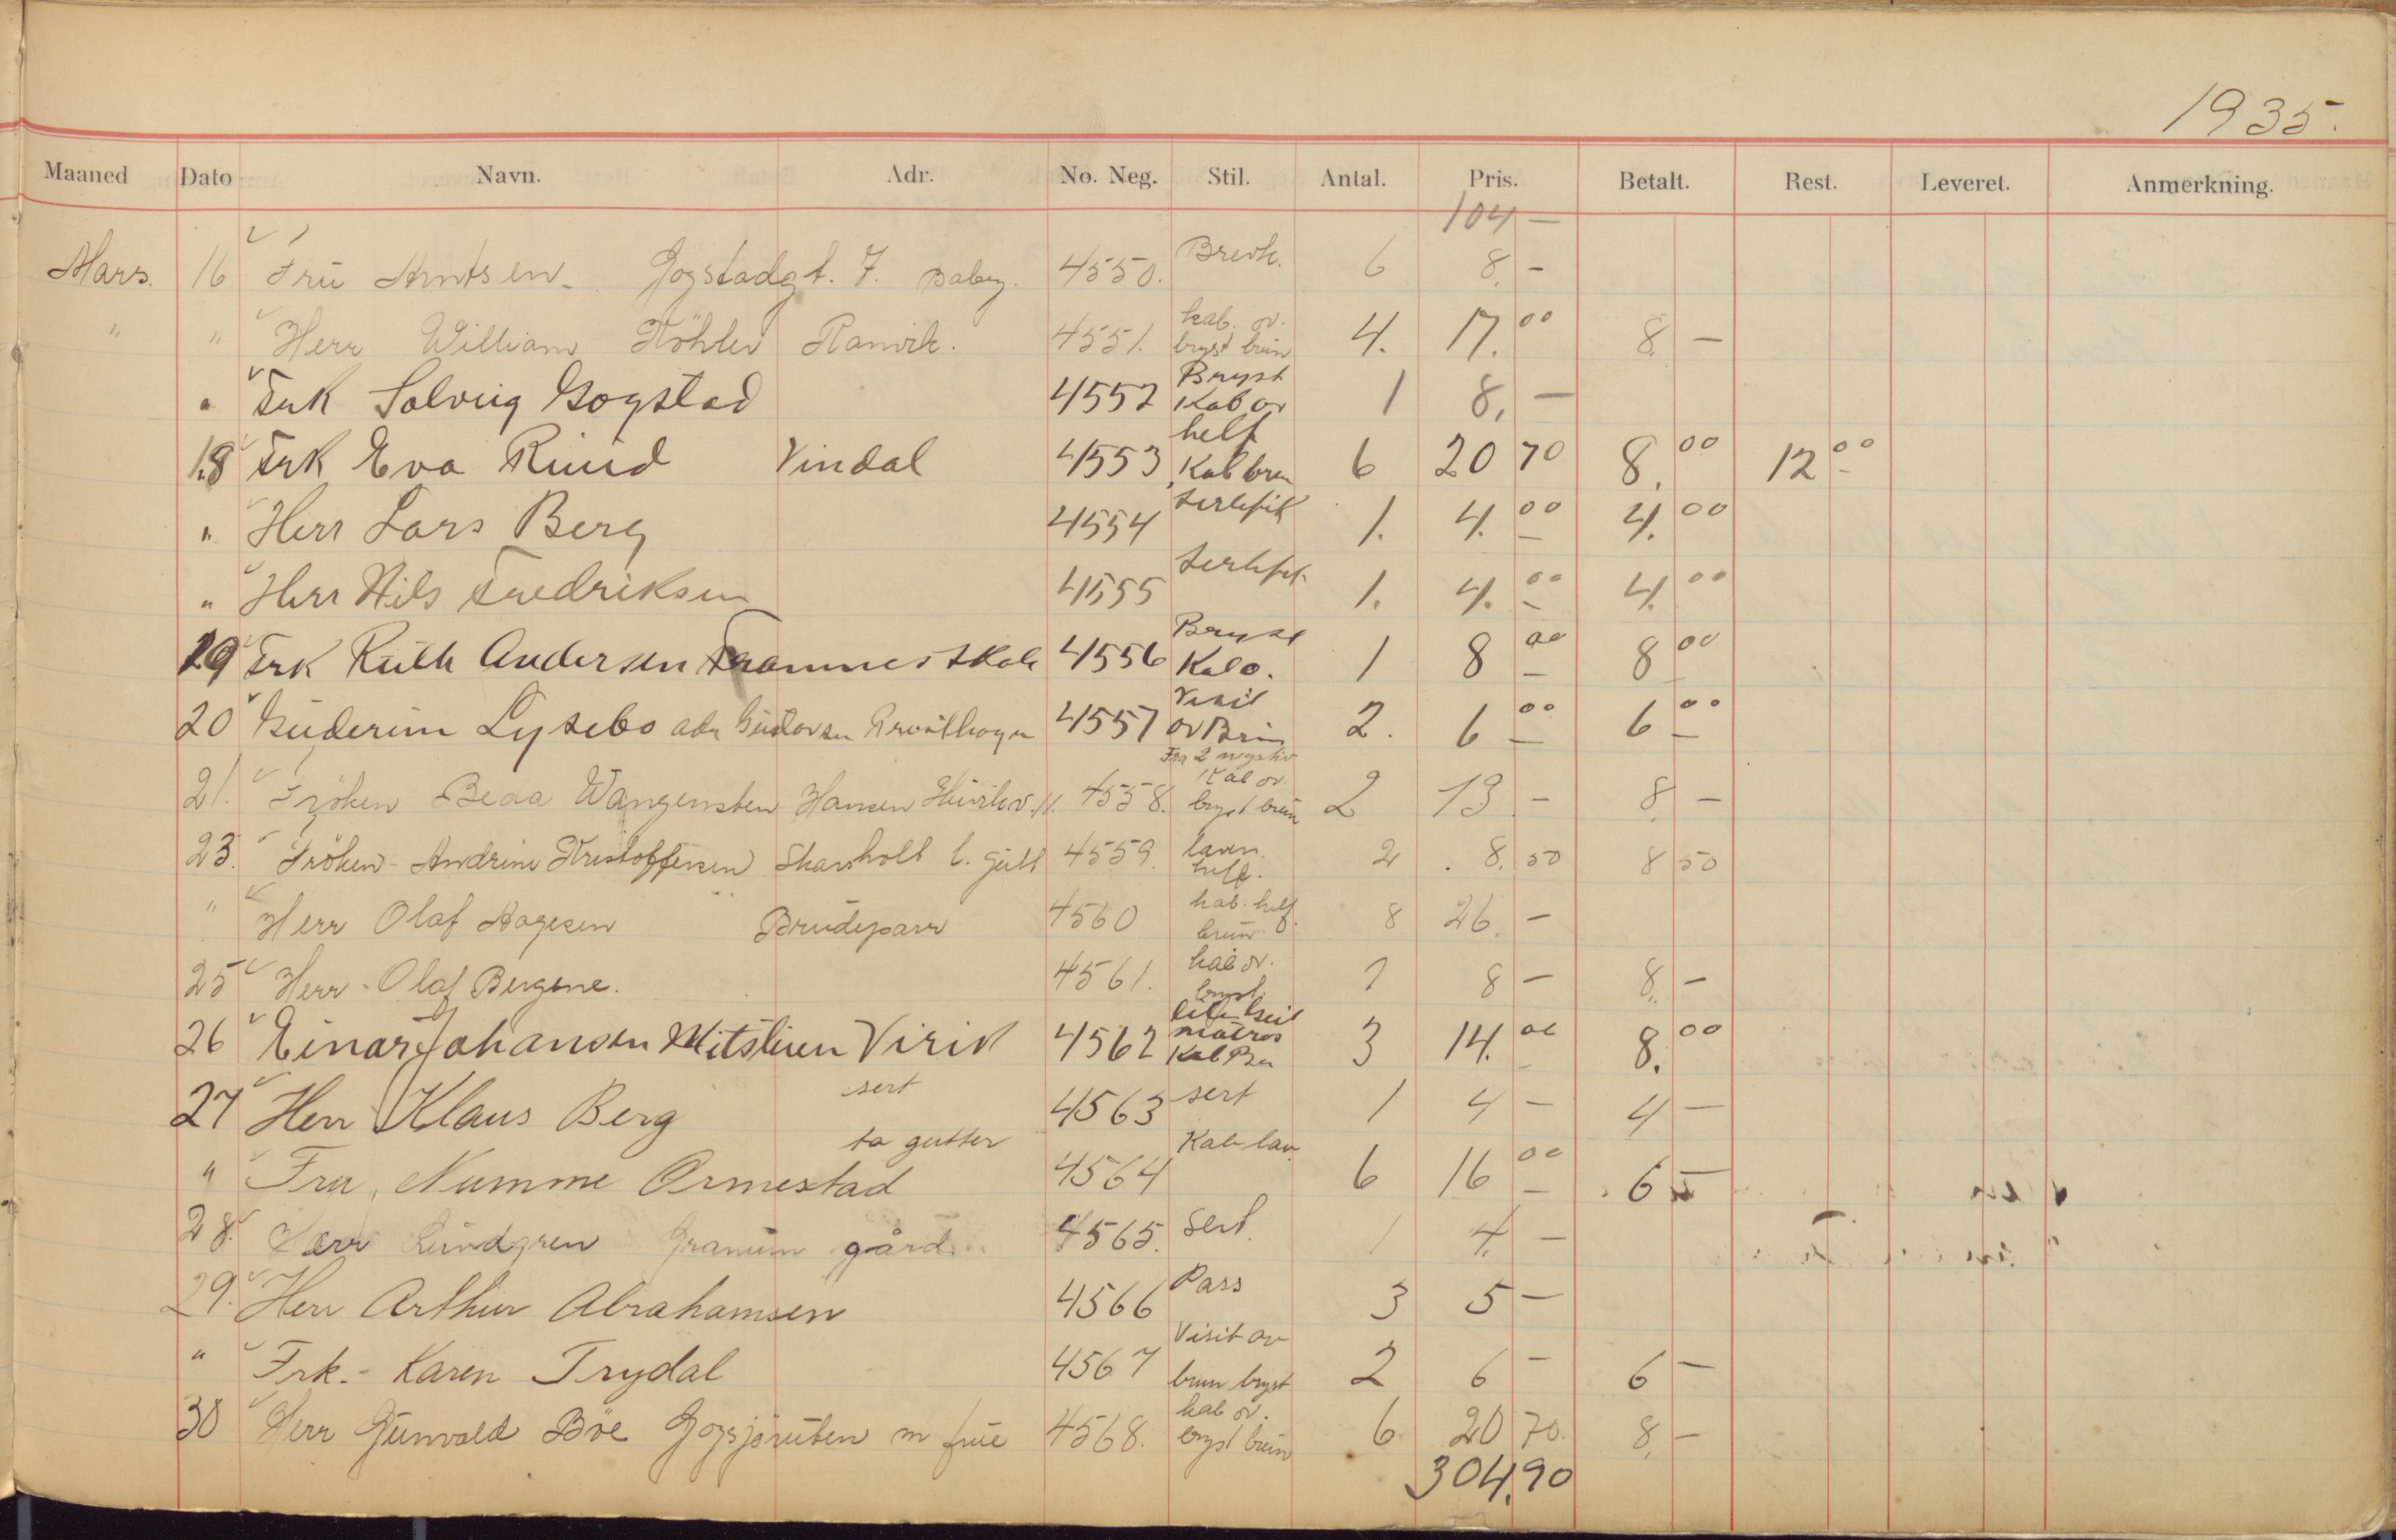 1935.
Maaned Dato Navn. Adr. No. Neg. Stil. Antal. Pris. Betalt. Rest. Leveret. Anmerkning.
104 —
Mars. 16 Fru Arntsen. Gogstadgt. 7. Baby. 4550. Brevk. 6 8. -
" " Herr William Köhler Ranvik. 4551. kab. ov. bryst brun 4. 17.00 8. —
" Frk Solveig Gogstad 4552 Bryst Kab ov 1 8, —
18 Frk Eva Ruud Vindal 4553 helf Kab brun 6 20 70 8.00 12 00
" Herr Lars Berg 4554 Sertifik 1. 4. 00 4. 00
" Herr Nils Fredriksen 4555 Sertifik 1. 4. 00 4. 00
19 Frk Ruth Andersen Framnes skole 4556 Bryst Kab o. 1 8 00 8 00
20 Guderun Lysebo adr Gustavsen 4557 Visit ov Brun 2. 6 00 6 00
21. Fröken Beda Wangensten Hansen 4558. Fra 2 negativ Kab ov. bryst brun 2 13 - 8. -
23. Fröken - Andrine Kristoffersen Skarsholt l. gutt 4559. laven. helf. 2 8. 50 8 50
" Herr Olaf Aagesen Brudepar 4560 kab. helf. brun 8 26. -
25 Herr - Olaf Bergene. 4561. kab ov. bryst. 1 8 - 8. -
26 Einar Johansen Virik 4562 matros Kab Brun 3 14. 00 8. 00
27 Herr Klaus Berg sert 4563 sert 1 4 - 4 -
" Fru Numme Ormestad to gutter 4564 Kab lav. 6 16 00 6 -
28. Herr Lundgren Granum gård 4565. Sert. 1 4. -
29. Herr Arthur Abrahamsen 4566 Pass 3 5 -
" Frk. - Karen Trydal 4567 Visit ov brun bryst 2 6 - 6 -
30 Herr Gunvald Böe Gogsjöruten m frue 4568. kab ov. bryst brun 6 20 70. 8. -
304,90